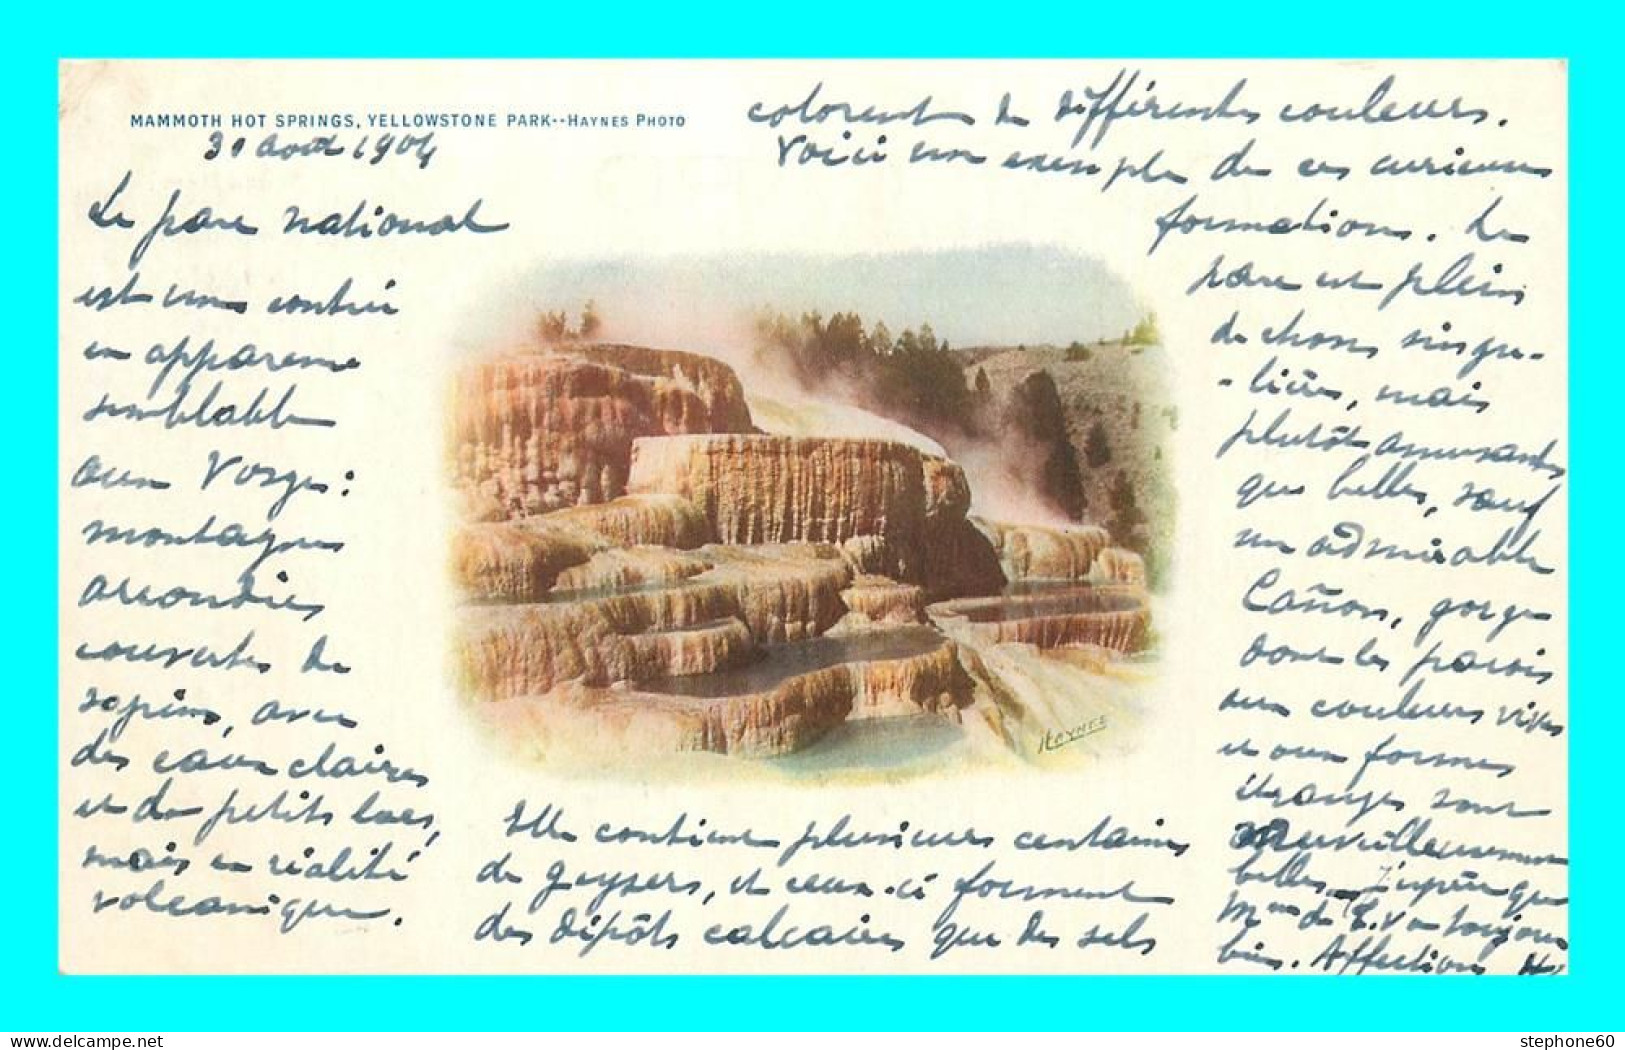 MAMMOTH HOT SPRINGS, YELLOWSTONE PARK--HAYNES PHOTO
31 août 1904
Le parc national
est une contrée
en apparence
semblable
aux Vosges :
montagnes
arrondies
couvertes de
sapins, avec
des eaux claires
et de petits lacs,
mais en réalité
volcanique.
Elle contient plusieurs centaines
de geysers, et ceux-ci forment
des dépôts calcaires que des sels
colorent de différentes couleurs.
Voici un exemple de ces curieuses
formations. Le
parc est plein
de choses singu-
-lières, mais
plutôt amusantes
que belles, sauf
un admirable
Cañon, gorge
dont les parois
aux couleurs vives
et aux formes
étranges sont
merveilleusement
belles. J'espère que
Mme de E. va toujours
bien. Affections
HAYNES
stephone60